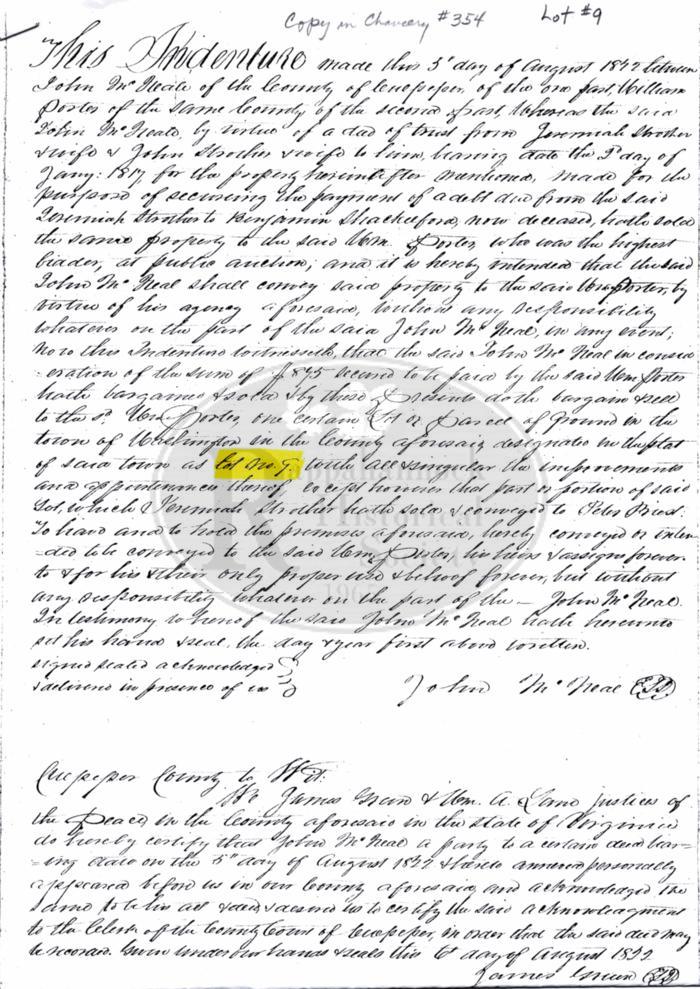 Copy in Chancery #354 Lot #9
This Indenture made this 5th day of August 1822 between
John McNeale of the County of Culpeper, of the one part, William
Porter of the same County of the second part, Whereas the said
John McNeale, by virtue of a deed of trust from Jeremiah Strother
& wife & John Strother & wife to him, bearing date the day of
Jany. 1817 for the property hereinafter mentioned, made for the
purpose of securing the payment of a debt due from the said
Jeremiah Strother to Benjamin Shackelford, now deceased, hath sold
the same property to the said Wm. Porter, who was the highest
bidder, at public auction; and it is hereby intended that the said
John McNeal shall convey said property to the said Wm Porter, by
virtue of his agency aforesaid, without any responsibility
whatever on the part of the said John McNeal, in any event;
Now this Indenture witnesseth, that the said John McNeal in consid-
eration of the sum of $895 secured to be paid by the said Wm. Porter
hath bargained & sold & by these Presents doth bargain & sell
to the sd. Wm. Porter, one certain Lot or Parcel of Ground in the
town of Washington in the County aforesaid, designated in the plat
of said town as Lot No. 9. with all & singular the improvements
and appurtenances thereof except however that part or portion of said
Lot, which Jeremiah Strother hath sold & conveyed to Peter Priest.
To have and to hold the premises aforesaid, hereby conveyed or inten-
=ded to be conveyed to the said Wm. Porter, his heirs & assigns forever
to & for his & their only proper use & behoof forever, but without
any responsibility whatever on the part of the — John McNeal.
In testimony whereof the said John McNeal hath hereunto
set his hand & seal, the day & year first above written.
signed sealed acknowledged
& delivered in presence of us
John McNeal
Culpeper County to Wit:
We James Green & Wm. A. Lane justices of
the Peace, in the County aforesaid in the state of Virginia
do hereby certify that John McNeal a party to a certain deed bear-
=ing date on the 5th day of August 1822 & hereto annexed personally
appeared before us in our County aforesaid, and acknowledged the
same to be his act & deed, & desired us to certify the said acknowledgment
to the Clerk of the County Court of Culpeper, in order that the said deed may
be recorded. Given under our hands & seals this day of August 1822
James Green
Rappahannock
Historical
Society